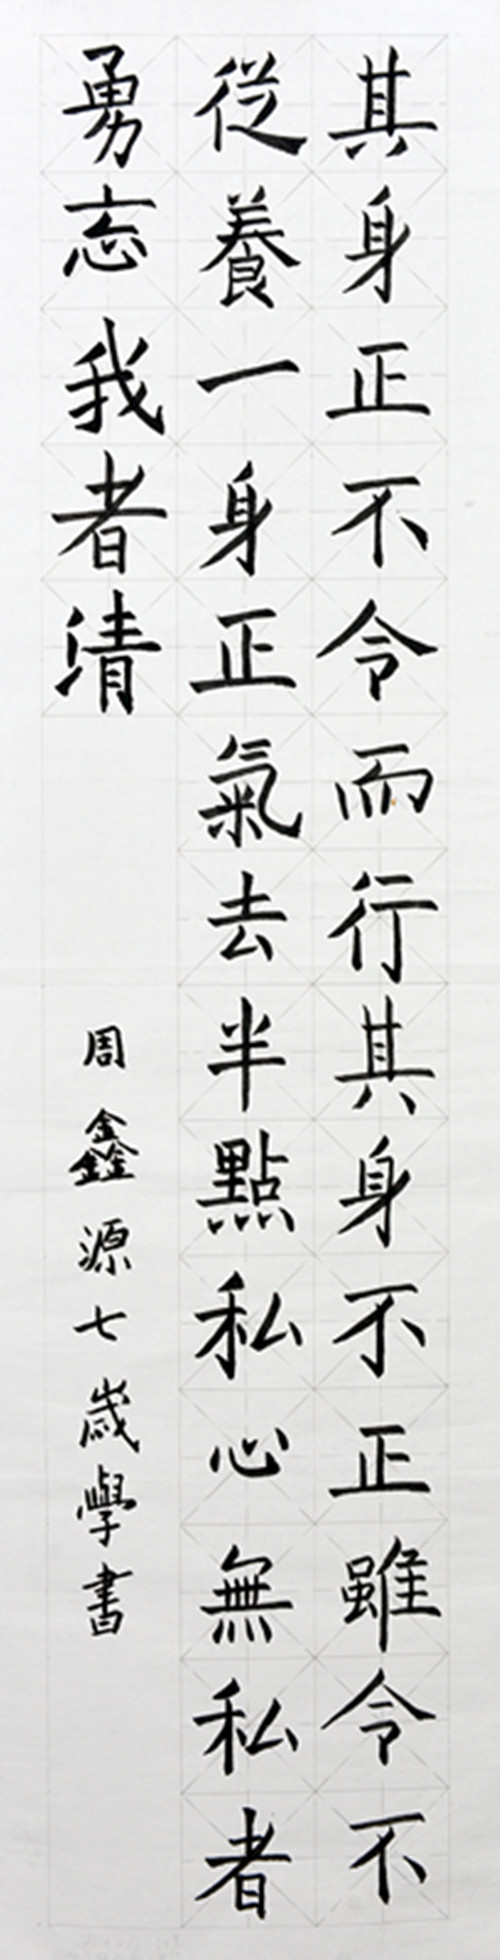 其身正不令而行其身不正雖令不
從養一身正氣去半點私心無私者
勇忘我者清
周鑫源七歲學書